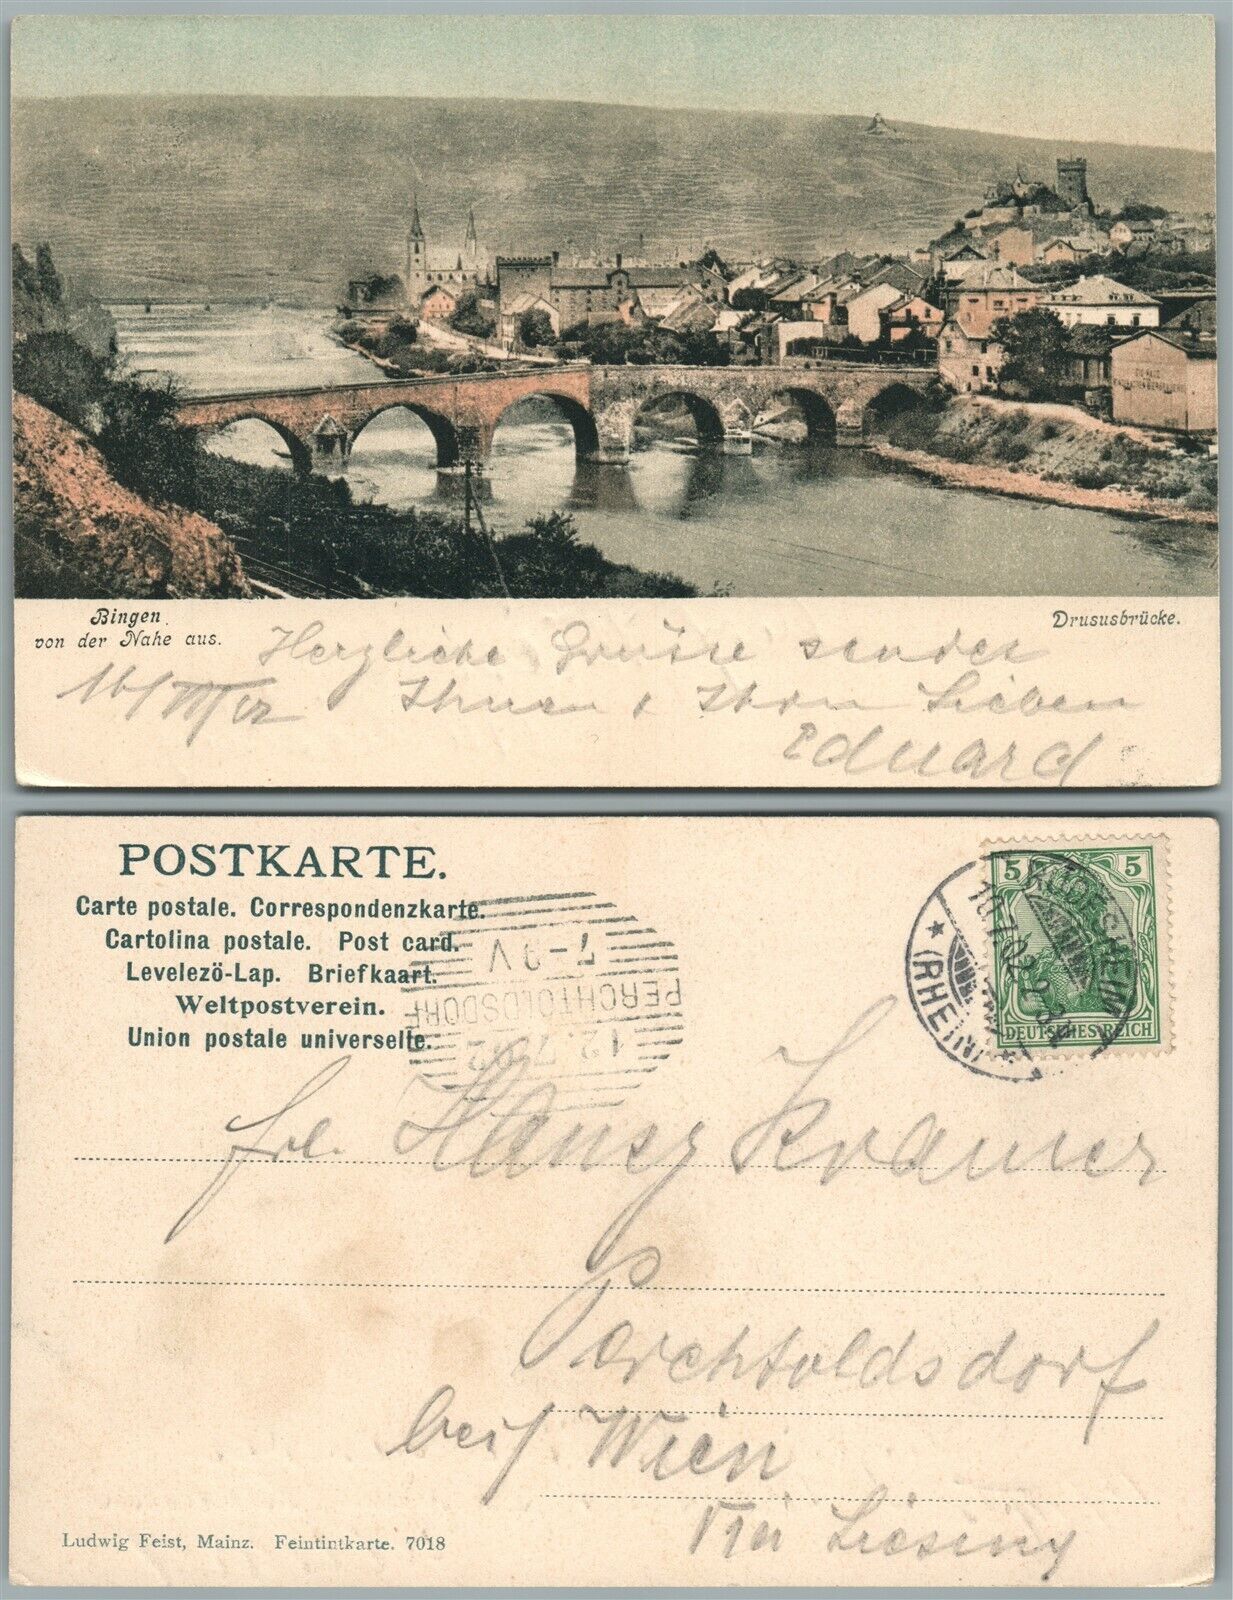 Bingen
von der Nahe aus.
Drususbrücke.
Herzliche Grüsse sendet
Ihnen Ihren Lieben
Eduard
POSTKARTE.
Carte postale. Correspondenzkarte.
Cartolina postale. Post card.
Levelezö-Lap. Briefkaart.
Weltpostverein.
Union postale universelle.
7-9 V
PERCHTOLDSDORF
12.7.02
5 5
DEUTSCHES REICH
RÜDESHEIM
(RHEIN)
10.7.02.
Frl. Kramer
Perchtoldsdorf
bei Wien
via Liesing
Ludwig Feist, Mainz. Feintintkarte. 7018